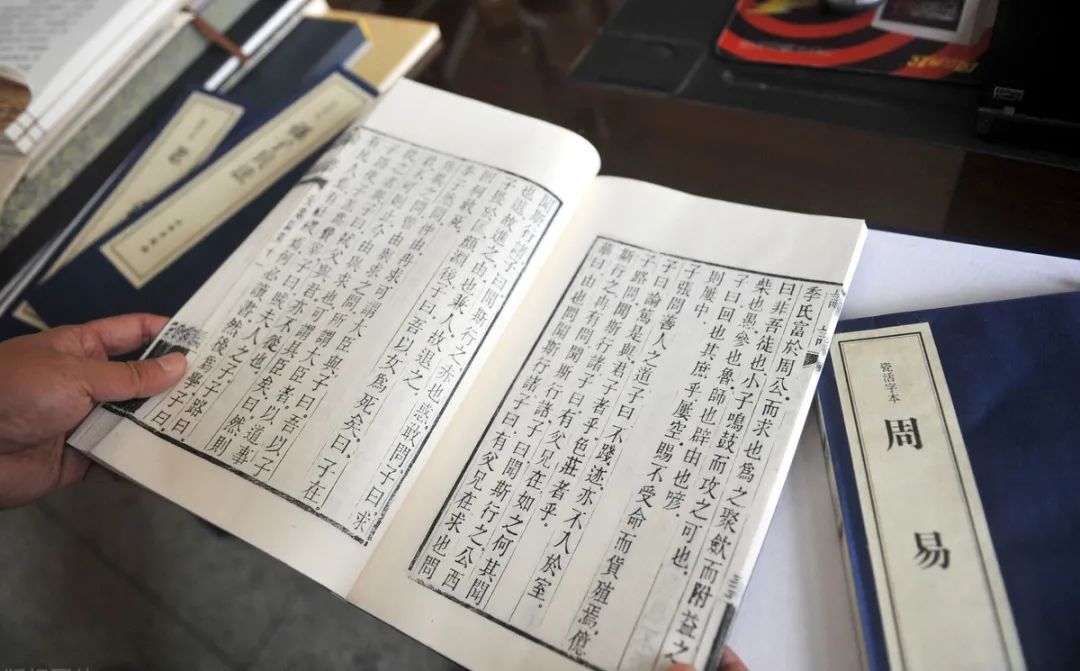 季氏富於周公。而求也為之聚歛而附益之
曰非吾徒也。小子鳴鼓而攻之。可也。
柴也愚。參也魯。師也辟。由也喭。
子曰回也。其庶乎屢空。賜不受命而貨殖焉。億
則屢中。
子張問善人之道。子曰。不踐迹。亦不入於室。
子曰。論篤是與。君子者乎。色莊者乎。
子路問聞斯行諸。子曰。有父兄在。如之何其聞
斯行之。冉有問聞斯行諸。子曰。聞斯行之。公西
華曰。由也問聞斯行諸。子曰。有父兄在。求也問
聞斯行諸。子曰。聞斯行之。赤也惑。敢問。子曰。求
也退。故進之。由也兼人。故退之。
子畏於匡。顏淵後。子曰。吾以女為死矣。曰。子在。
回何敢死。
季子然問仲由冉求可謂大臣與。子曰。吾以子
為異之問。曾由與求之問。所謂大臣者。以道事
君。不可則止。今由與求也。可謂具臣矣。曰。然則
從之者與。子曰。弑父與君。亦不從也。
子路使子羔為費宰。子曰。賊夫人之子。子路曰。
有民人焉。有社稷焉。何必讀書。然後為學。子曰。
瓷活字本
周易